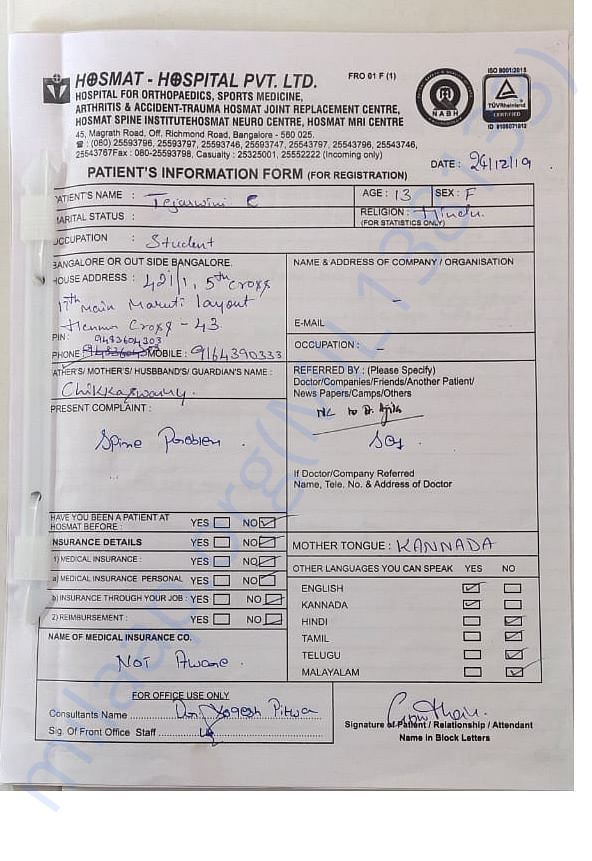 HOSMAT - HOSPITAL PVT. LTD.
FRO 01 F (1)
HOSPITAL FOR ORTHOPAEDICS, SPORTS MEDICINE,
ARTHRITIS & ACCIDENT-TRAUMA HOSMAT JOINT REPLACEMENT CENTRE,
HOSMAT SPINE INSTITUTEHOSMAT NEURO CENTRE, HOSMAT MRI CENTRE
45, Magrath Road, Off. Richmond Road, Bangalore - 560 025.
☎ : (080) 25593796, 25593797, 25593746, 25593747, 25543797, 25543796, 25543746,
25543767Fax : 080-25593798, Casualty : 25325001, 25552222 (Incoming only)
NABH
ISO 9001:2015
TÜVRheinland
CERTIFIED
ID 9105071812
DATE : 24/12/19
PATIENT'S INFORMATION FORM (FOR REGISTRATION)
PATIENT'S NAME : Tejaswini C
AGE : 13 SEX : F
MARITAL STATUS :
RELIGION : Hindu
(FOR STATISTICS ONLY)
OCCUPATION : Student
BANGALORE OR OUT SIDE BANGALORE.
HOUSE ADDRESS : 421/1, 5th Cross
17th Main Maruti layout
Cross - 43
PIN :
9483604303
PHONE MOBILE : 9164390333
NAME & ADDRESS OF COMPANY / ORGANISATION
-
E-MAIL
OCCUPATION : -
FATHER'S/ MOTHER'S/ HUSBAND'S/ GUARDIAN'S NAME :
Chikkaswamy.
REFERRED BY : (Please Specify)
Doctor/Companies/Friends/Another Patient/
News Papers/Camps/Others
PRESENT COMPLAINT :
Spine Problem .
If Doctor/Company Referred
Name, Tele. No. & Address of Doctor
HAVE YOU BEEN A PATIENT AT
HOSMAT BEFORE : YES NO
INSURANCE DETAILS YES NO
1) MEDICAL INSURANCE : YES NO
a) MEDICAL INSURANCE PERSONAL YES NO
b) INSURANCE THROUGH YOUR JOB : YES NO
2) REIMBURSEMENT : YES NO
NAME OF MEDICAL INSURANCE CO.
NOT Aware .
MOTHER TONGUE : KANNADA
OTHER LANGUAGES YOU CAN SPEAK YES NO
ENGLISH
KANNADA
HINDI
TAMIL
TELUGU
MALAYALAM
FOR OFFICE USE ONLY
Consultants Name Dr. Yogesh
Sig. Of Front Office Staff
Signature of Patient / Relationship / Attendant
Name in Block Letters